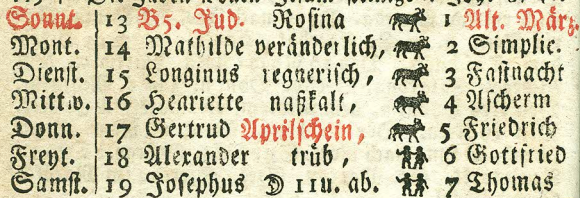 Sonnt. 13 B5. Jud. Rosina 1 Alt. März.
Mont. 14 Mathilde veränderlich, 2 Simplic.
Dienst. 15 Longinus regnerisch, 3 Fastnacht
Mittw. 16 Henriette naßkalt, 4 Ascherm
Donn. 17 Gertrud Aprilschein, 5 Friedrich
Freyt. 18 Alexander trüb, 6 Gottfried
Samst. 19 Josephus ☽ 11u. ab. 7 Thomas